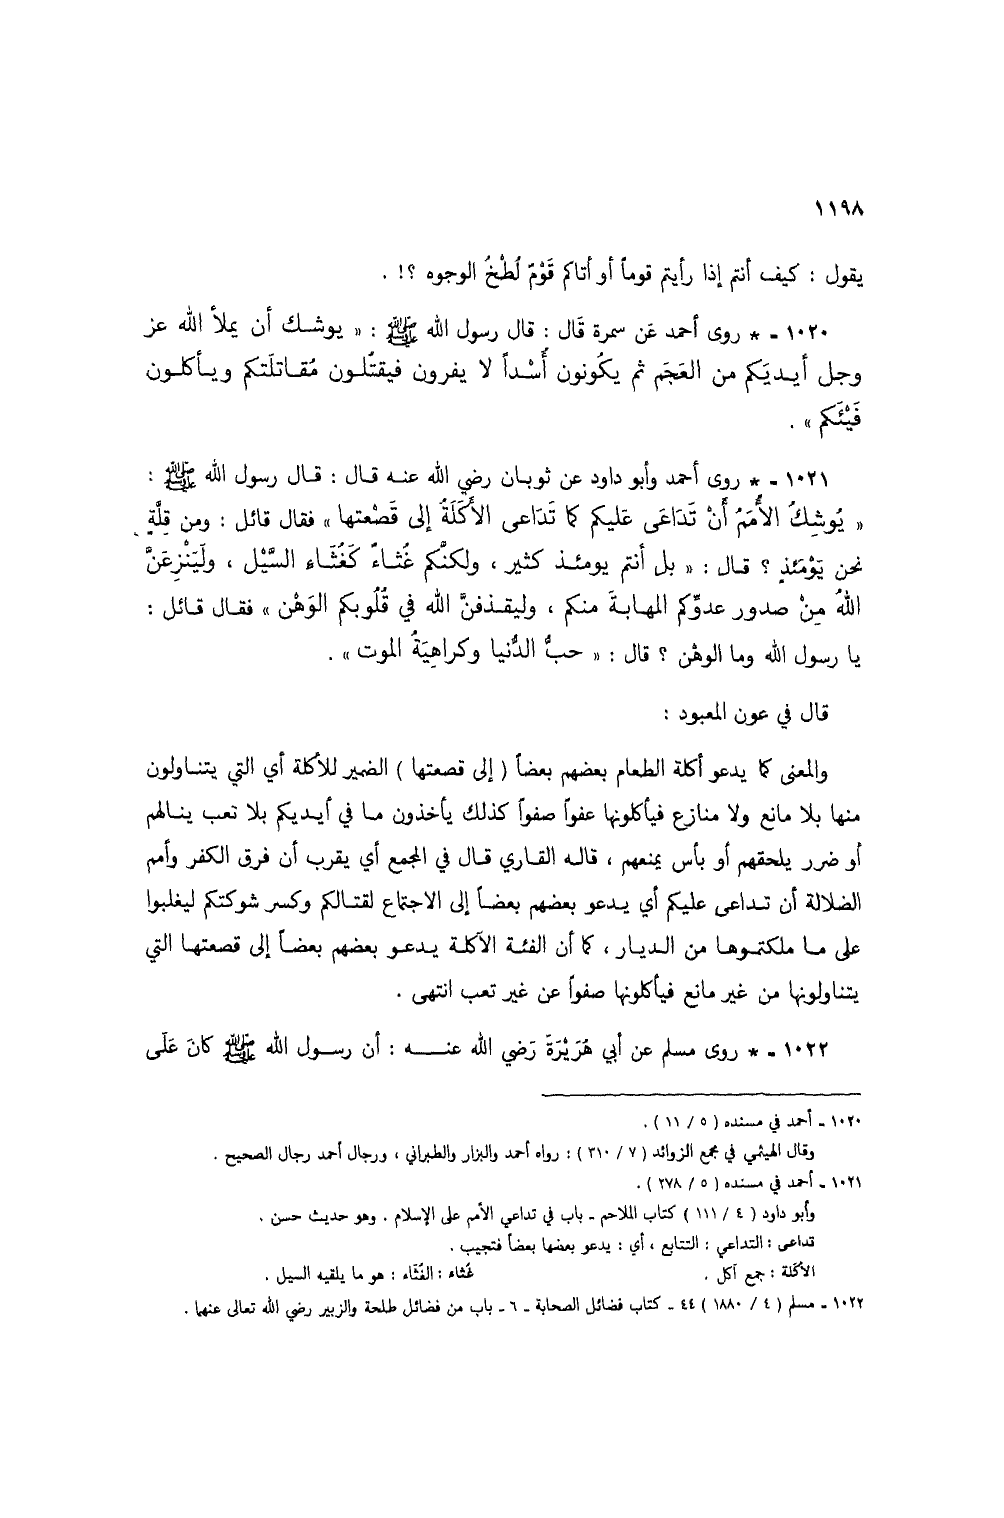 ١١٩٨
يقول : كيف أنتم إذا رأيتم قوماً أو أتاكم قَوْمٌ لُطْخُ الوجوه ؟! .
١٠٢٠ - * روى أحمد عَن سمرة قَال : قال رسول الله ﷺ : « يوشك أن يملأ الله عز
وجل أيديَكم من العَجَم ثم يكُونون أُسْداً لا يفرون فيقتُلون مُقاتلَتكم ويأكلون
فَيْئَكم » .
١٠٢١ - * روى أحمد وأبو داود عن ثوبان رضي الله عنه قال : قال رسول الله ﷺ :
« يُوشِكُ الأُمَمُ أَنْ تَدَاعَى عَليكم كما تَدَاعى الأَكَلَةُ إلى قَصْعتها » فقال قائل : ومن قِلَّةٍ
نحن يَوْمَئذٍ ؟ قال : « بل أنتم يومئذ كثير ، ولكنَّكم غُثاءٌ كَغُثَاءِ السَّيْل ، ولَيَنْزِعَنَّ
اللهُ مِنْ صدور عدوِّكم المهابةَ منكم ، وليقذفنَّ الله في قُلُوبكم الوَهْن » فقال قائل :
يا رسول الله وما الوهْن ؟ قال : « حبُّ الدُّنيا وكراهِيَةُ الموت » .
قال في عون المعبود :
والمعنى كما يدعو أكلة الطعام بعضهم بعضاً ( إلى قصعتها ) الضمير للأكلة أي التي يتناولون
منها بلا مانع ولا منازع فيأكلونها عفواً صفواً كذلك يأخذون ما في أيديكم بلا تعب ينالهم
أو ضرر يلحقهم أو بأس يمنعهم ، قاله القاري قال في المجمع أي يقرب أن فرق الكفر وأمم
الضلالة أن تداعى عليكم أي يدعو بعضهم بعضاً إلى الاجتماع لقتالكم وكسر شوكتكم ليغلبوا
على ما ملكتموها من الديار ، كما أن الفئة الآكلة يدعو بعضهم بعضاً إلى قصعتها التي
يتناولونها من غير مانع فيأكلونها صفواً عن غير تعب انتهى .
١٠٢٢ - * روى مسلم عن أبي هُرَيْرَةَ رَضي الله عنه : أن رسول الله ﷺ كانَ عَلَى
١٠٢٠ - أحمد في مسنده ( ٥ / ١١ ) .
وقال الهيثمي في مجمع الزوائد ( ٧ / ٣١٠ ) : رواه أحمد والبزار والطبراني ، ورجال أحمد رجال الصحيح .
١٠٢١ - أحمد في مسنده ( ٥ / ٢٧٨ ) .
وأبو داود ( ٤ / ١١١ ) كتاب الملاحم - باب في تداعي الأمم على الإسلام . وهو حديث حسن .
تداعى : التداعي : التتابع ، أي : يدعو بعضها بعضاً فتجيب .
الأكَلة : جمع آكل . غُثاء : الغُثاء : هو ما يلقيه السيل .
١٠٢٢ - مسلم ( ٤ / ١٨٨٠ ) ٤٤ - كتاب فضائل الصحابة - ٦ - باب من فضائل طلحة والزبير رضي الله تعالى عنهما .